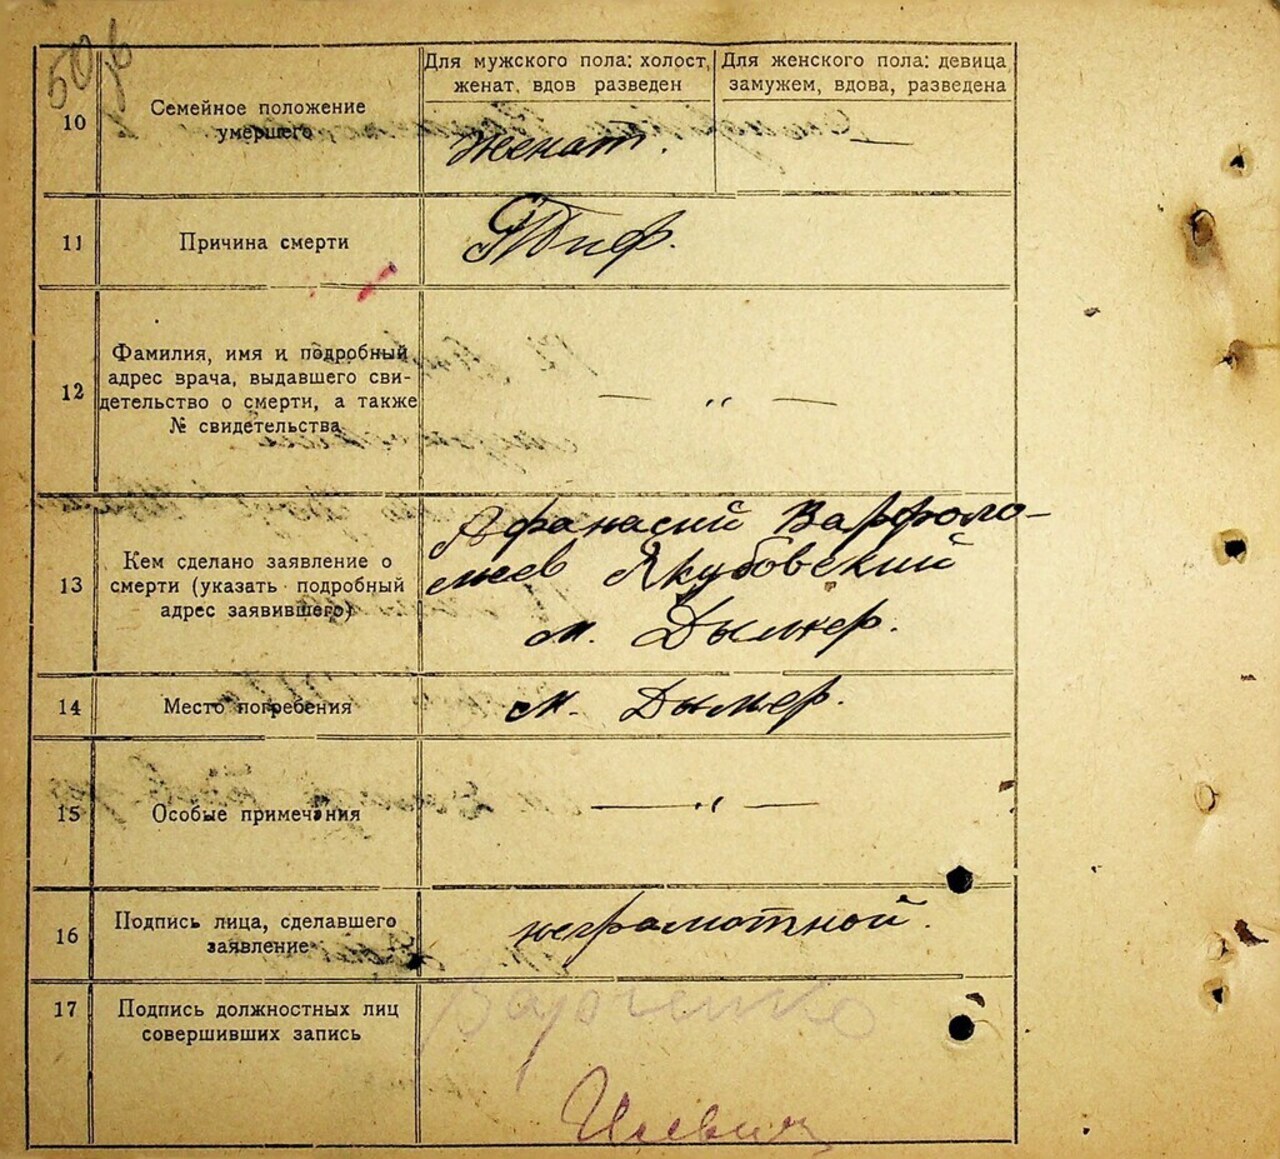 Для мужского пола: холост, женат, вдов разведен
Для женского пола: девица замужем, вдова, разведена
10 Семейное положение умершего
женат. —
11 Причина смерти
Тиф.
12 Фамилия, имя и подробный
адрес врача, выдавшего сви-
детельство о смерти, а также
№ свидетельства
— „ —
13 Кем сделано заявление о
смерти (указать подробный
адрес заявившего)
Афанасий Варфоло-
меев Якубовский
м. Дымер.
14 Место погребения
м. Дымер.
15 Особые примечания
— „ —
16 Подпись лица, сделавшего
заявление
неграмотной.
17 Подпись должностных лиц
совершивших запись